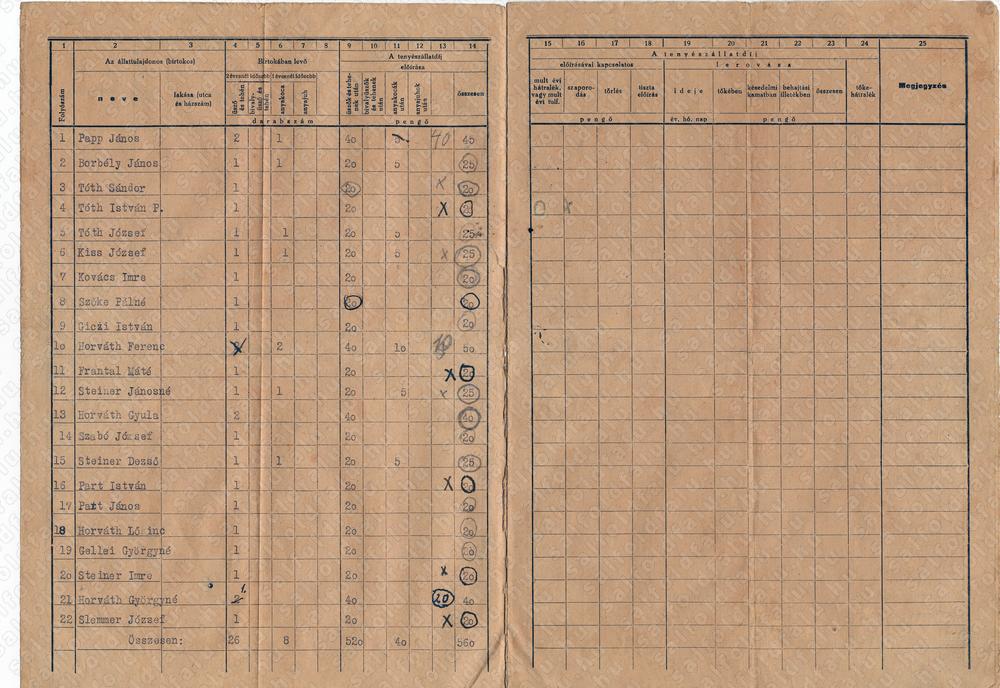 1 2 3 4 5 6 7 8 9 10 11 12 13 14
Folyószám
Az állattulajdonos (birtokos)
Birtokában levő
A tenyészállatdíj
előírása
neve
lakása (utca és házszám)
2 évesnél idősebb
1 évesnél idősebb
üsző és tehén
anyakoca
anyajuh
anyakocák után
anyajuhok után
összesen
darabszám
pengő
1 Papp János 2 1 4o 5 40 45
2 Borbély János 1 1 2o 5 25
3 Tóth Sándor 1 2o x 2o
4 Tóth István P. 1 2o x
5 Tóth József 1 1 2o 5 25
6 Kiss József 1 1 2o 5 x 25
7 Kovács Imre 1 2o 2o
8 Szőke Pálné 1 2o 2o
9 Giczi István 1 2o 2o
1o Horváth Ferenc 2 4o 1o 5o
11 Frantal Máté 1 2o x
12 Steiner Jánosné 1 1 2o 5 x 25
13 Horváth Gyula 2 4o 4o
14 Szabó József 1 2o 2o
15 Steiner Dezső 1 1 2o 5 25
16 Part István 1 2o x 2o
17 Part János 1 2o 2o
18 Horváth Lőrinc 1 2o 2o
19 Gellei Györgyné 1 2o 2o
2o Steiner Imre 1 2o x 2o
21 Horváth Györgyné 2 1 4o 20 4o
22 Slemmer József 1 2o x 2o
Összesen: 26 8 52o 4o 56o
15 16 17 18 19 20 21 22 23 24 25
A tenyészállatdíj
előírásával kapcsolatos
lerovása
mult évi hátralék, vagy mult évi túlf.
szaporodás
törlés
tiszta előírás
ideje
tőkében
késedelmi kamatban
behajtási illetékben
összesen
tőkehátralék
Megjegyzés
pengő
év. hó. nap
pengő
0 x